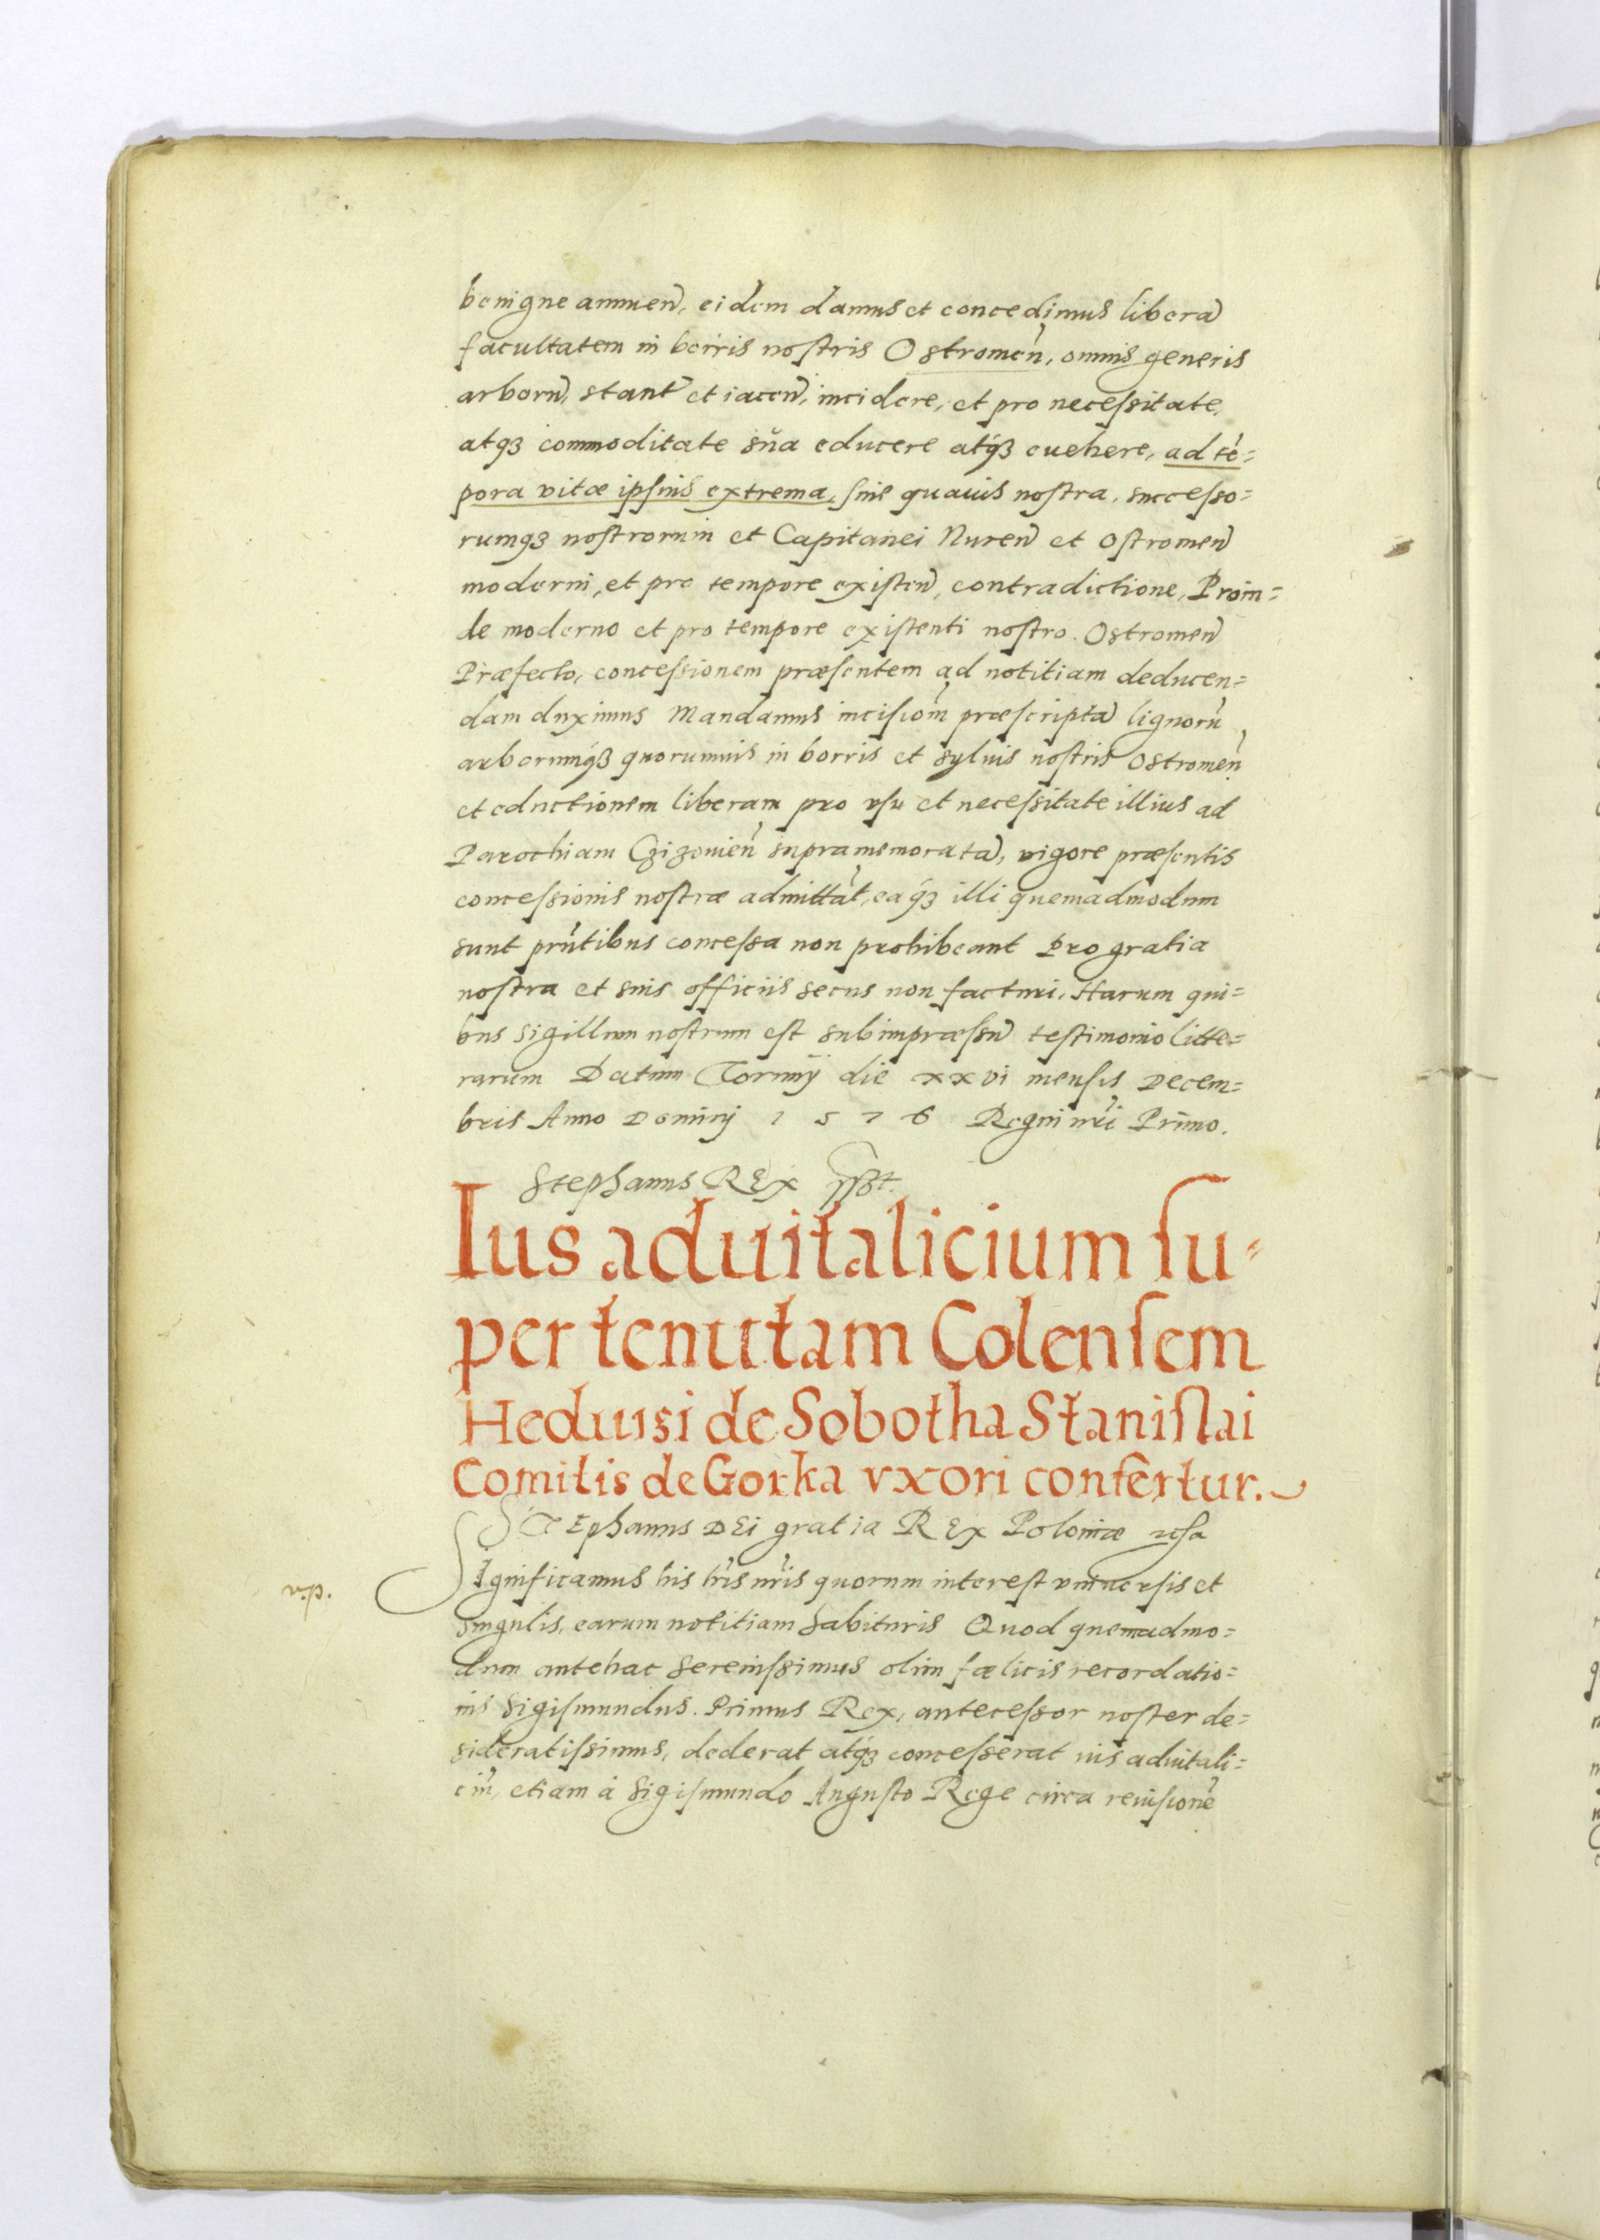 benigne annuen̄, eidem damus et concedimus liberā
facultatem in borris nostris Ostromen̄, omnis generis
arborū, stant̄ et iacen̄, incidere, et pro necessitate,
atqꝫ commoditate sūa educere atqꝫ euehere, ad tē=
pora vitæ ipsius extrema, sine quauis nostra, successo=
rumqꝫ nostrorum et Capitanei Nuren̄ et Ostromen̄
moderni, et pro tempore existen̄, contradictione, Proin=
de moderno et pro tempore existenti nostro Ostromen̄
Præfecto, concessionem præsentem ad notitiam deducen=
dam duximus Mandamus incisiōm præscriptā lignorū
arborumqꝫ quorumuis in borris et syluis nostris Ostromen̄
et eductionem liberam pro vsu et necessitate illius ad
Parochiam Czizouien̄ supramemoratā, vigore præsentis
concessionis nostræ admittāt, eaqꝫ illi quemadmodum
sunt prn̄tibus concessa non prohibeant Pro gratia
nostra et suis officiis secus non facturi, Harum qui=
bus sigillum nostrum est subimpræssū testimonio litte=
rarum Datum Torunij die xxvi mensis Decem=
bris Anno Dominij 1576 Regni nr̄i Primo.
Stephanus REx sspt.
Ius aduitalicium su=
per tenutam Colensem
Heduisi de Sobotha Stanislai
Comitis de Gorka vxori confertur.
STEphanus DEi gratia REx Poloniæ etc̄a
v.p.
SIgnificamus his lr̄is nr̄is quorum interest vniuersis et
singulis, earum notitiam habituris Quod quemadmo=
dum antehac Serenissimus olim fælicis recordatio=
nis Sigismundus Primus Rex, antecessor noster de=
sideratissimus, dederat atqꝫ concesserat ius aduitali=
ciū, etiam à Sigismundo Augusto Rege circa reuisionē